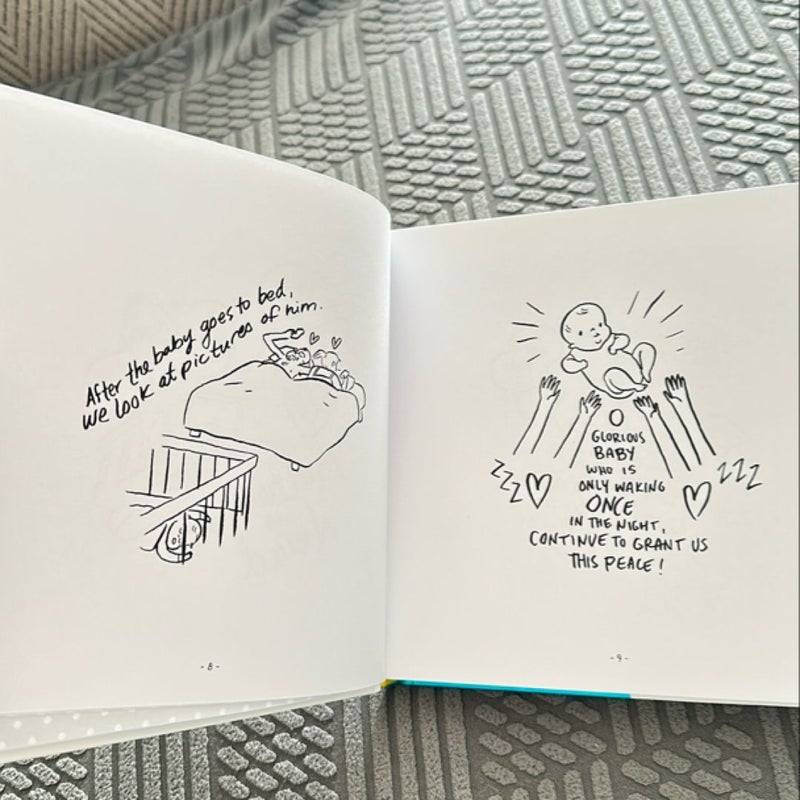 After the baby goes to bed,
we look at pictures of him.
- 8 -
O
GLORIOUS
BABY
WHO IS
ONLY WAKING
ONCE
IN THE NIGHT,
CONTINUE TO GRANT US
THIS PEACE!
ZZZ
ZZZ
- 9 -